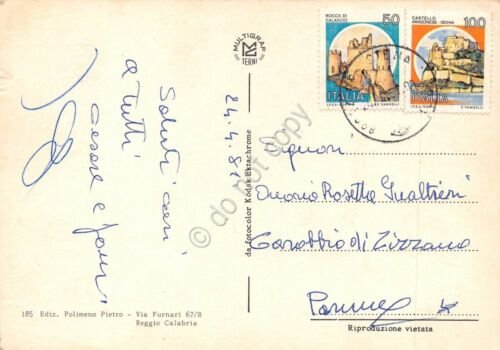 MULTIGRAF
TERNI
ROCCA DI CALASCIO
50
ITALIA
I.P.Z.S. ROMA
E. VANGELLI
CASTELLO ARAGONESE - ISCHIA
100
ITALIA
E. VANGELLI
Saluti cari
a tutti
Cesare e fam
24.4.81
Signori
Rosetta Gualtieri
Carobbio di Tizzano
Parma
da fotocolor Kodak Ektachrome
© do not copy
185 Ediz. Polimeno Pietro - Via Furnari 67/B
Reggio Calabria
Riproduzione vietata